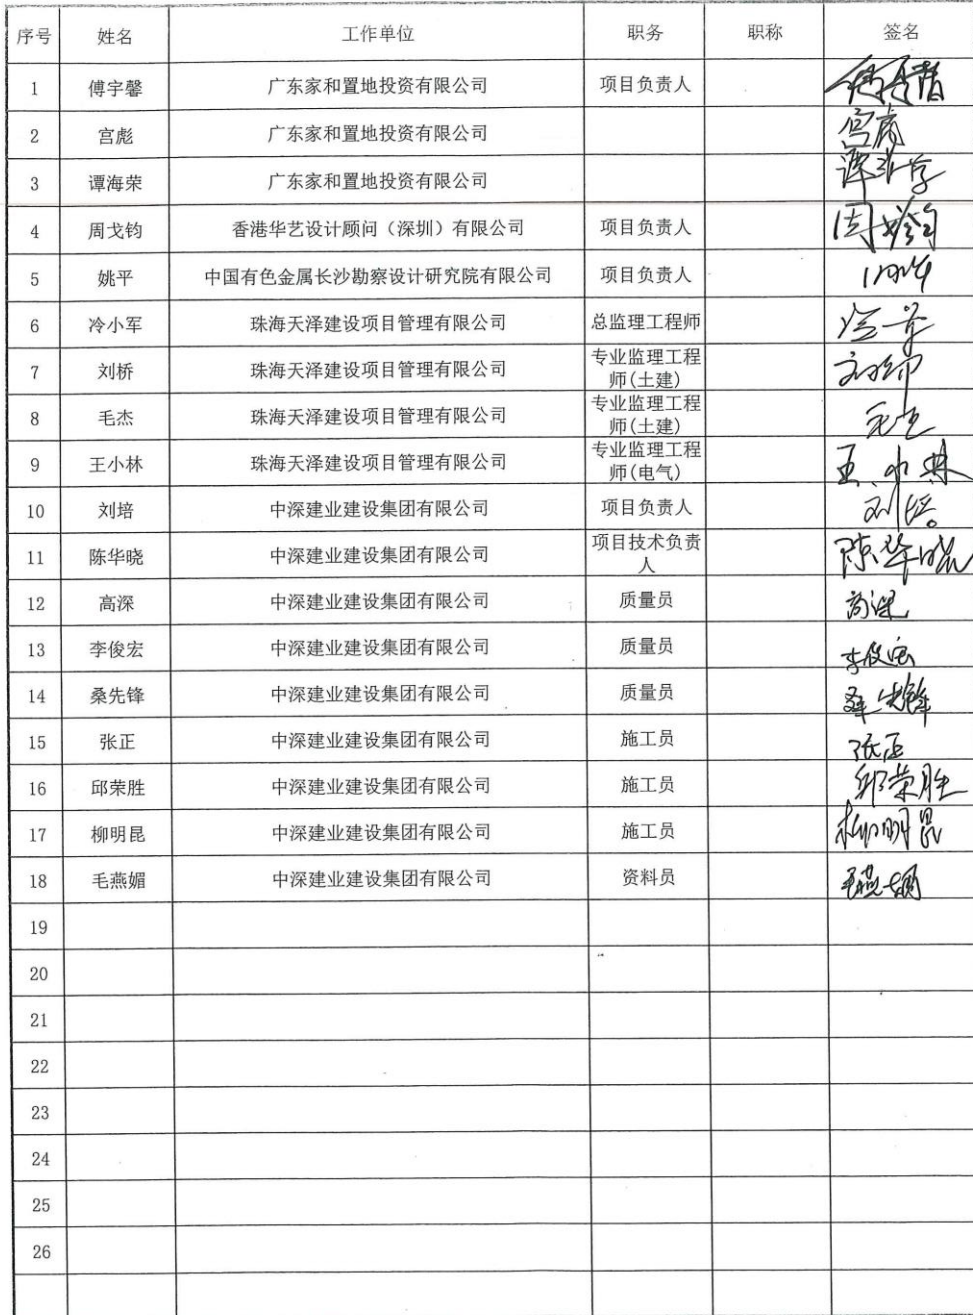 序号 姓名 工作单位 职务 职称 签名
1 傅宇馨 广东家和置地投资有限公司 项目负责人
2 宫彪 广东家和置地投资有限公司 宫彪
3 谭海荣 广东家和置地投资有限公司
4 周戈钧 香港华艺设计顾问（深圳）有限公司 项目负责人
5 姚平 中国有色金属长沙勘察设计研究院有限公司 项目负责人
6 冷小军 珠海天泽建设项目管理有限公司 总监理工程师
7 刘桥 珠海天泽建设项目管理有限公司 专业监理工程
师(土建)
8 毛杰 珠海天泽建设项目管理有限公司 专业监理工程
师(土建)
9 王小林 珠海天泽建设项目管理有限公司 专业监理工程
师(电气) 王小林
10 刘培 中深建业建设集团有限公司 项目负责人 刘培
11 陈华晓 中深建业建设集团有限公司 项目技术负责
人 陈华晓
12 高深 中深建业建设集团有限公司 质量员 高深
13 李俊宏 中深建业建设集团有限公司 质量员 李俊宏
14 桑先锋 中深建业建设集团有限公司 质量员 桑先锋
15 张正 中深建业建设集团有限公司 施工员 张正
16 邱荣胜 中深建业建设集团有限公司 施工员 邱荣胜
17 柳明昆 中深建业建设集团有限公司 施工员 柳明昆
18 毛燕媚 中深建业建设集团有限公司 资料员 毛燕媚
19
20
21
22
23
24
25
26